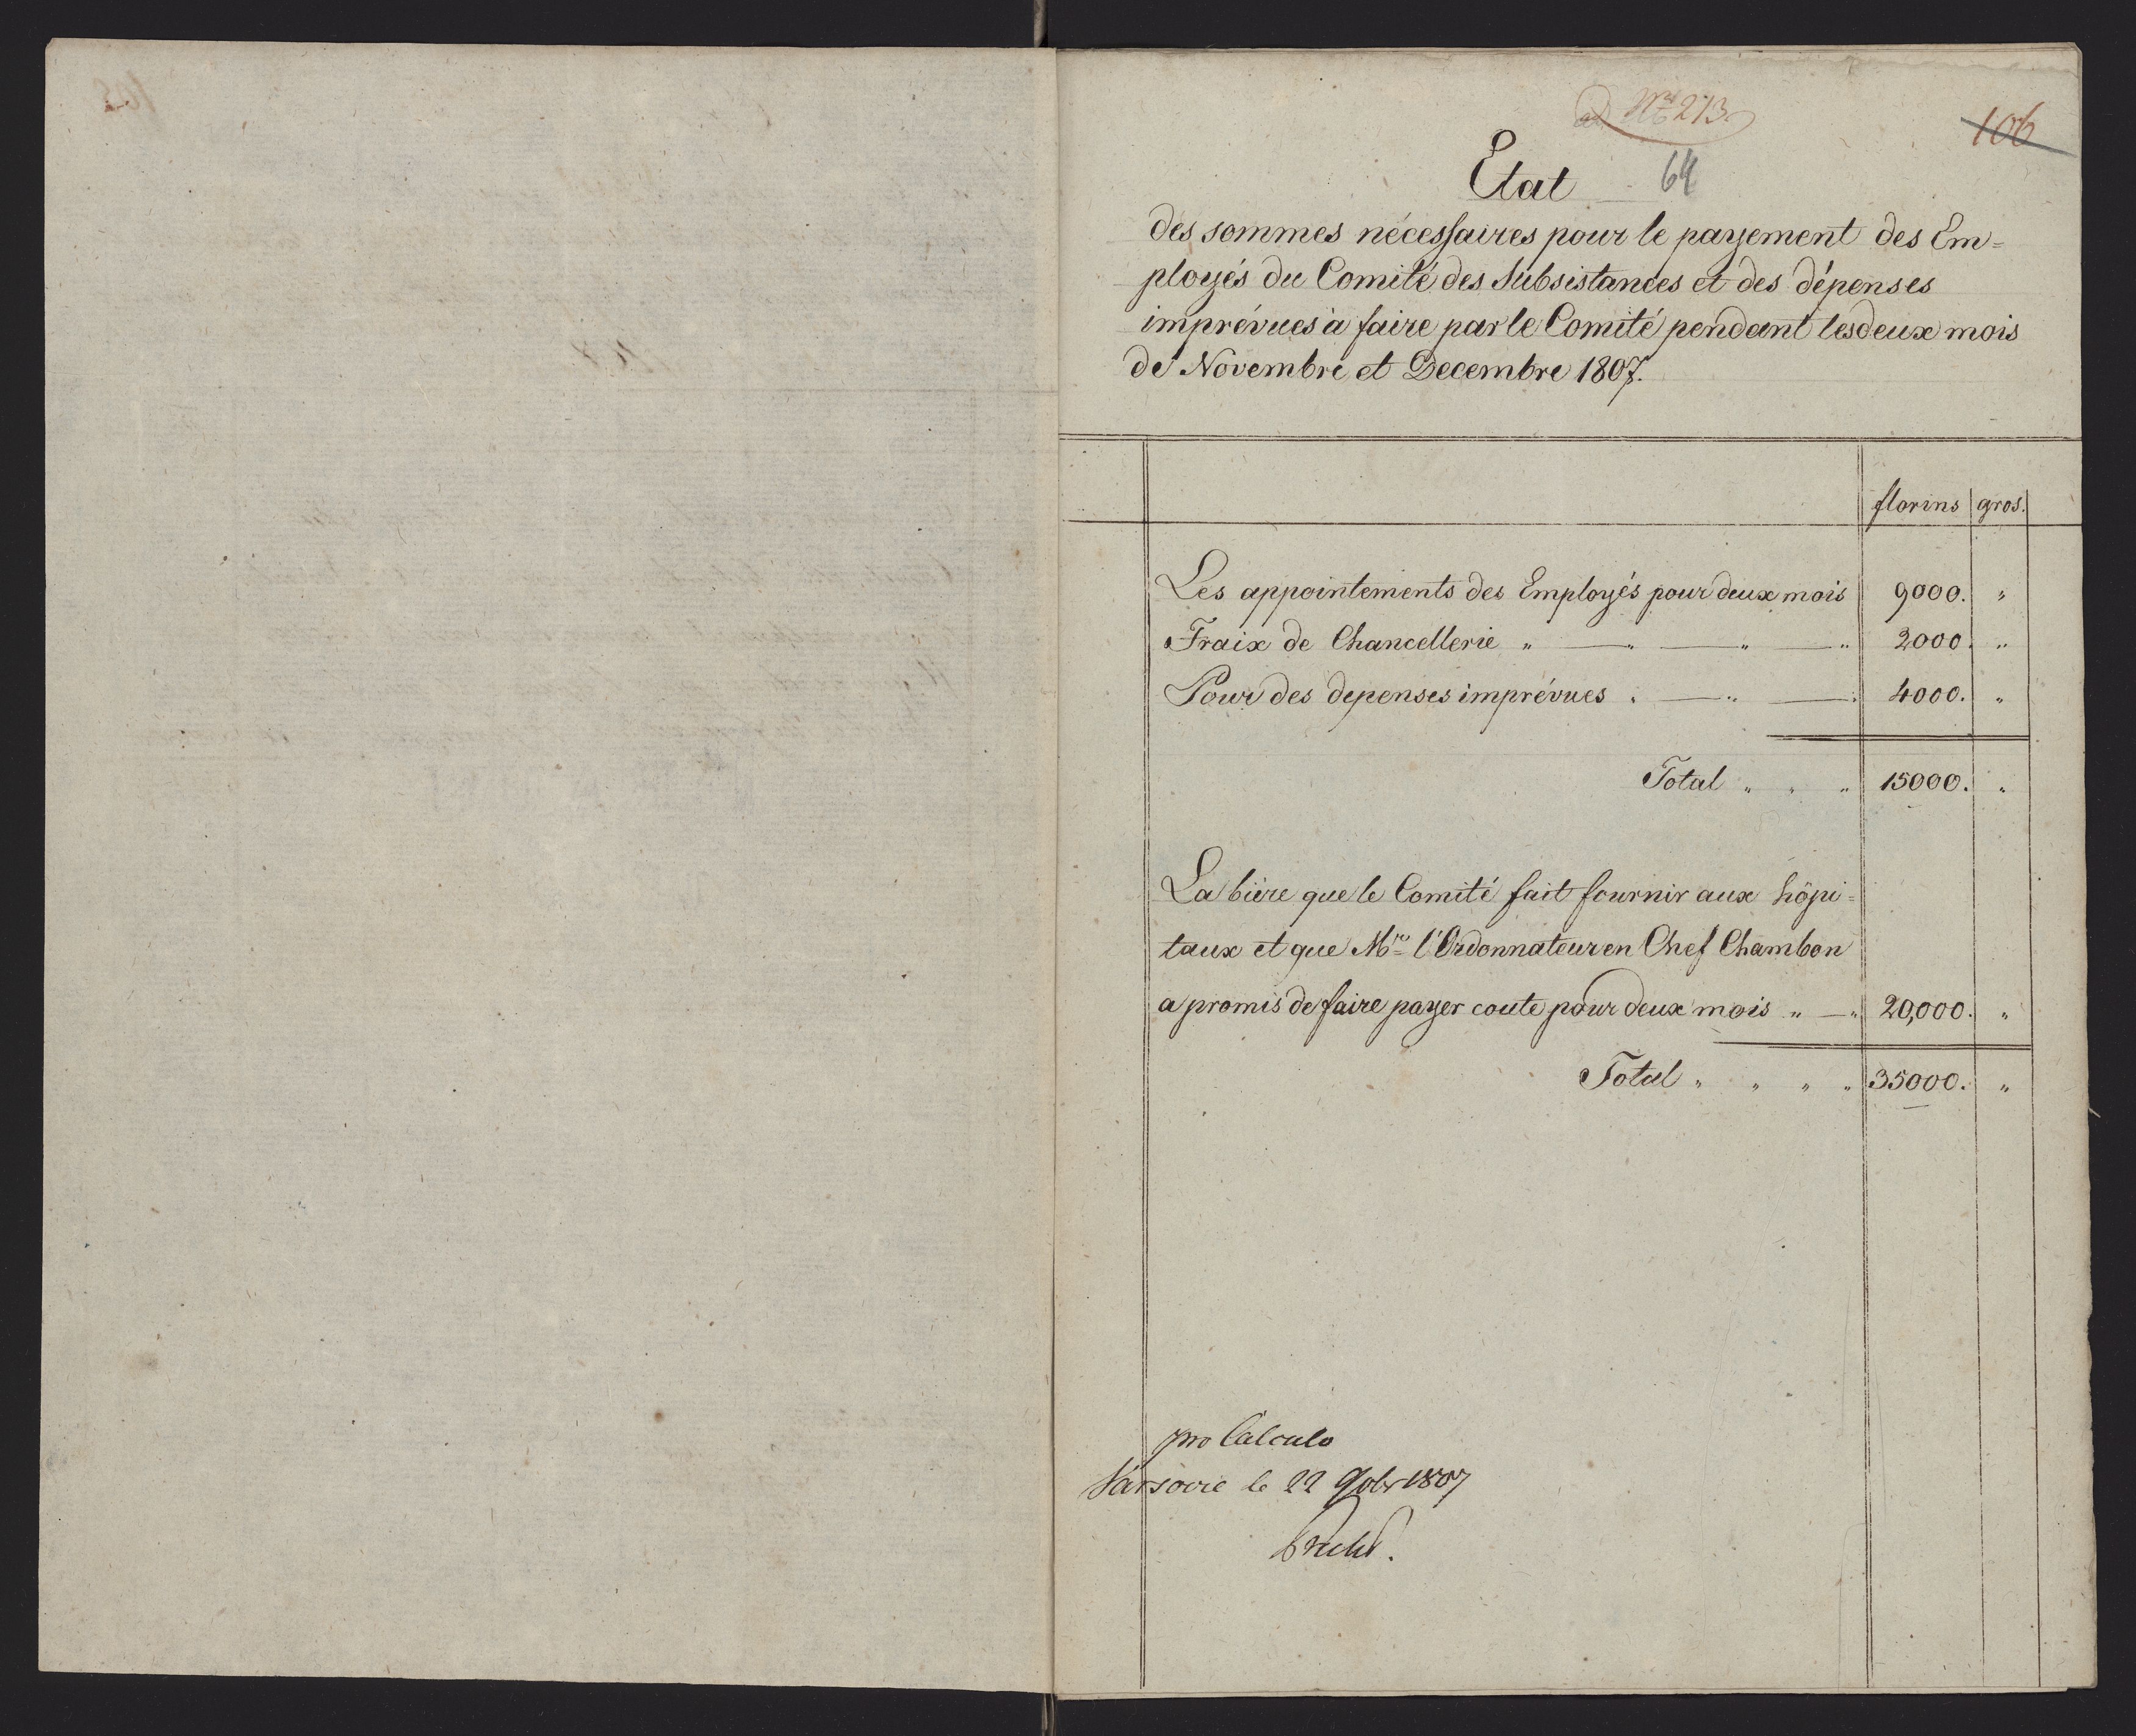 ad Nro 273.
106
Etat 64
des sommes nécessaires pour le payement des Em=
ployés du Comité des Subsistances et des dépenses
imprévues à faire par le Comité pendant les deux mois
de Novembre et Decembre 1807.
florins gros.
Les appointements des Employés pour deux mois 9000. "
Fraix de Chancellerie " — " — " — " 2000. "
Pour des depenses imprévues " — " — " 4000. "
Total " " " 15000. "
La bière que le Comité fait fournir aux hôpi=
taux et que Mr. l'Ordonnateur en Chef Chambon
a promis de faire payer coute pour deux mois " — " 20,000. "
Total " " " " 35000. "
pro Calculo
Varsovie le 22 9obr 1807